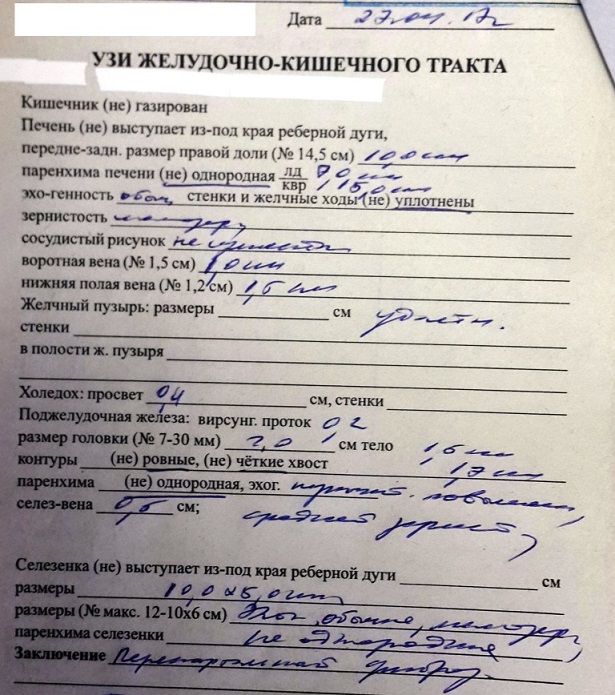 Дата 27.04.17г
УЗИ ЖЕЛУДОЧНО-КИШЕЧНОГО ТРАКТА
Кишечник (не) газирован
Печень (не) выступает из-под края реберной дуги,
передне-задн. размер правой доли (№ 14,5 см) 10,0 см
паренхима печени (не) однородная лд 7,0 см
квр 15,0 см
эхо-генность обыч, стенки и желчные ходы (не) уплотнены
зернистость мелкозер,
сосудистый рисунок не изменен
воротная вена (№ 1,5 см) 1,0 см
нижняя полая вена (№ 1,2 см) 1,5 см
Желчный пузырь: размеры см удален.
стенки
в полости ж. пузыря
Холедох: просвет 0,4 см, стенки
Поджелудочная железа: вирсунг. проток 0,2
размер головки (№ 7-30 мм) 2,0 см тело 1,6 см
контуры (не) ровные, (не) чёткие хвост 1,7 см
паренхима (не) однородная, эхог. повышен,
селез-вена 0,5 см; средней зернист,
Селезенка (не) выступает из-под края реберной дуги см
размеры 10,0х5,0 см
размеры (№ макс. 12-10х6 см) Эхог. обычн, мелкозер,
паренхима селезенки не однородная
Заключение